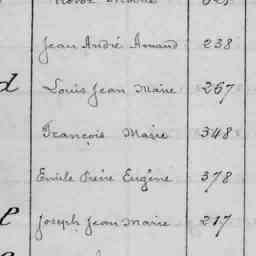 Jean André Armand 238
d Louis Jean Marie 267
François Marie 348
Emile Pierre Eugène 378
e Joseph Jean Marie 217